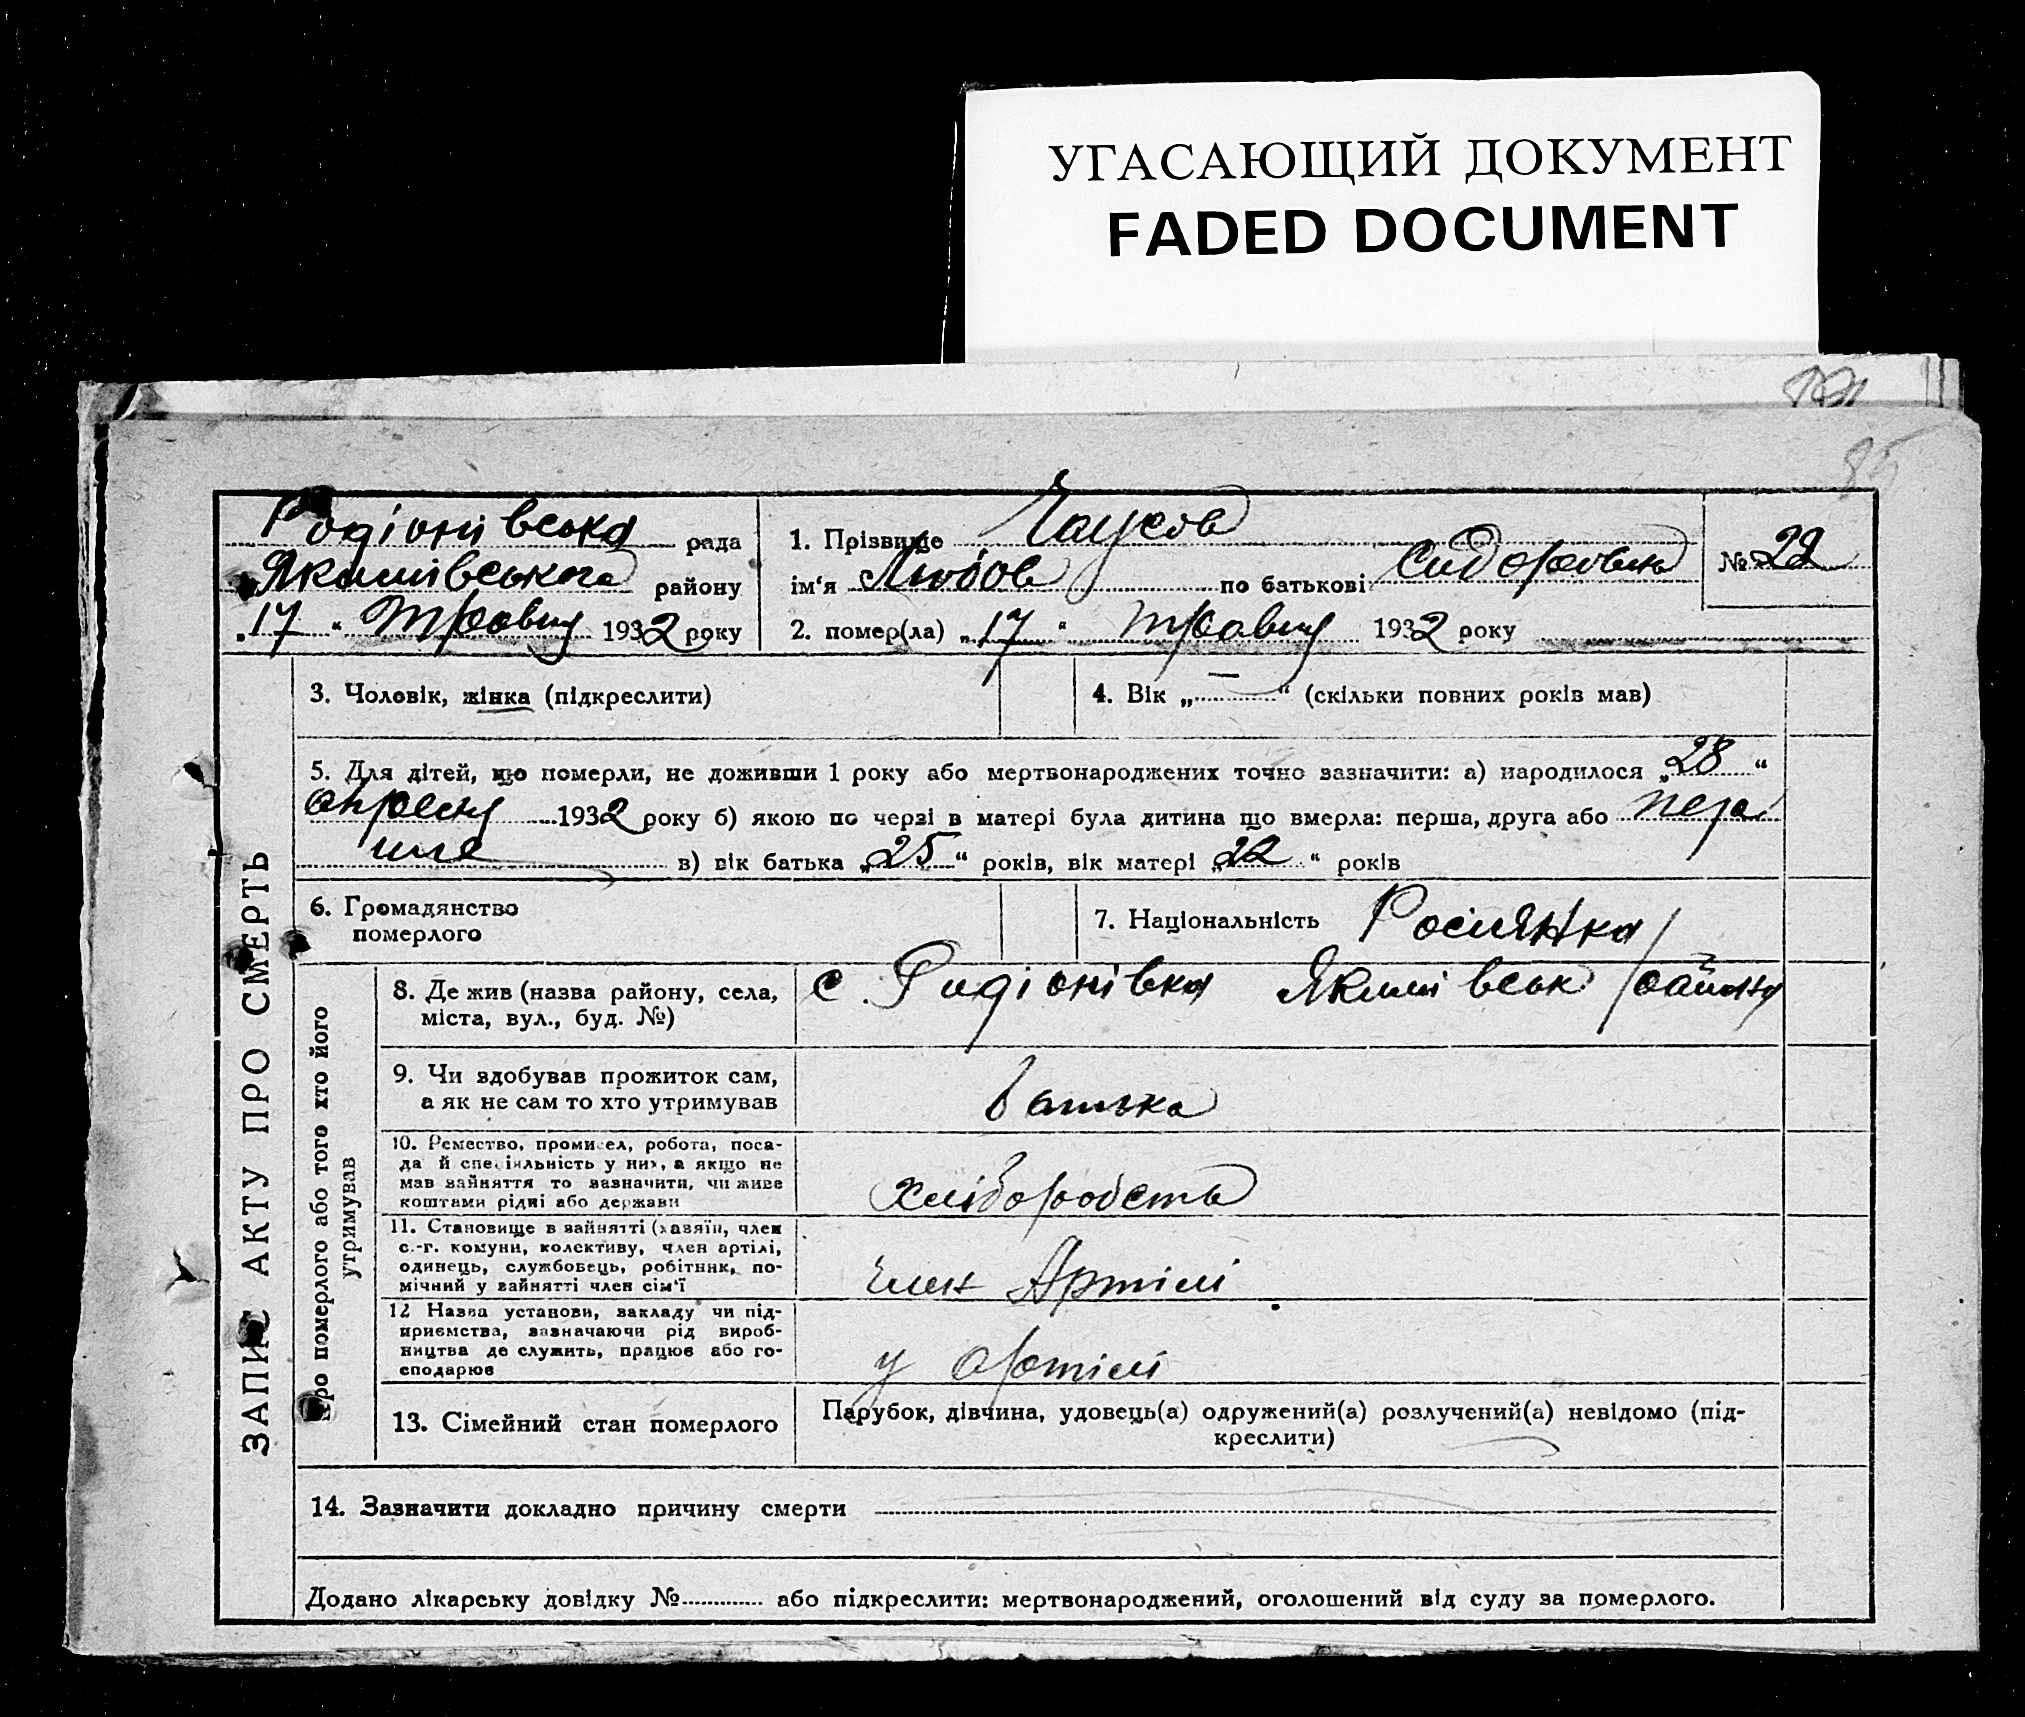 УГАСАЮЩИЙ ДОКУМЕНТ
FADED DOCUMENT
95
Родіонівська рада
Якимівського району
„17“ Травня 1932 року
1. Прізвище Чаусов
ім'я Любов по батькові Сидоровна
№ 22
2. помер(ла) „17“ травня 1932 року
ЗАПИС АКТУ ПРО СМЕРТЬ
3. Чоловік, жінка (підкреслити)
4. Вік „—“ (скільки повних років мав)
5. Для дітей, що померли, не доживши 1 року або мертвонароджених точно зазначити: а) народилося „28“
апреля 1932 року б) якою по черзі в матері була дитина що вмерла: перша, друга або пер
ша в) вік батька „25“ років, вік матері „22“ років
6. Громадянство
померлого
7. Національність Росиянка
Про померлого або того хто його
утримував
8. Де жив (назва району, села,
міста, вул., буд. №)
с. Родіонівка Якимівськ району
9. Чи здобував прожиток сам,
а як не сам то хто утримував
батька
10. Ремество, промисел, робота, поса-
да й спеціяльність у них, а якщо не
мав зайняття то зазначити, чи живе
коштами рідні або держави
хлібороб
11. Становище в зайнятті (хазяїн, член
с.-г. комуни, колективу, член артілі,
одинець, службовець, робітник, по-
мічний у зайнятті член сім'ї
член Артілі
12 Назва установи, закладу чи під-
приємства, зазначаючи рід вироб-
ництва де служить, працює або го-
сподарює
у артілі
13. Сімейний стан померлого
Парубок, дівчина, удовець(а) одружений(а) розлучений(а) невідомо (під-
креслити)
14. Зазначити докладно причину смерти
Додано лікарську довідку № або підкреслити: мертвонароджений, оголошений від суду за померлого.